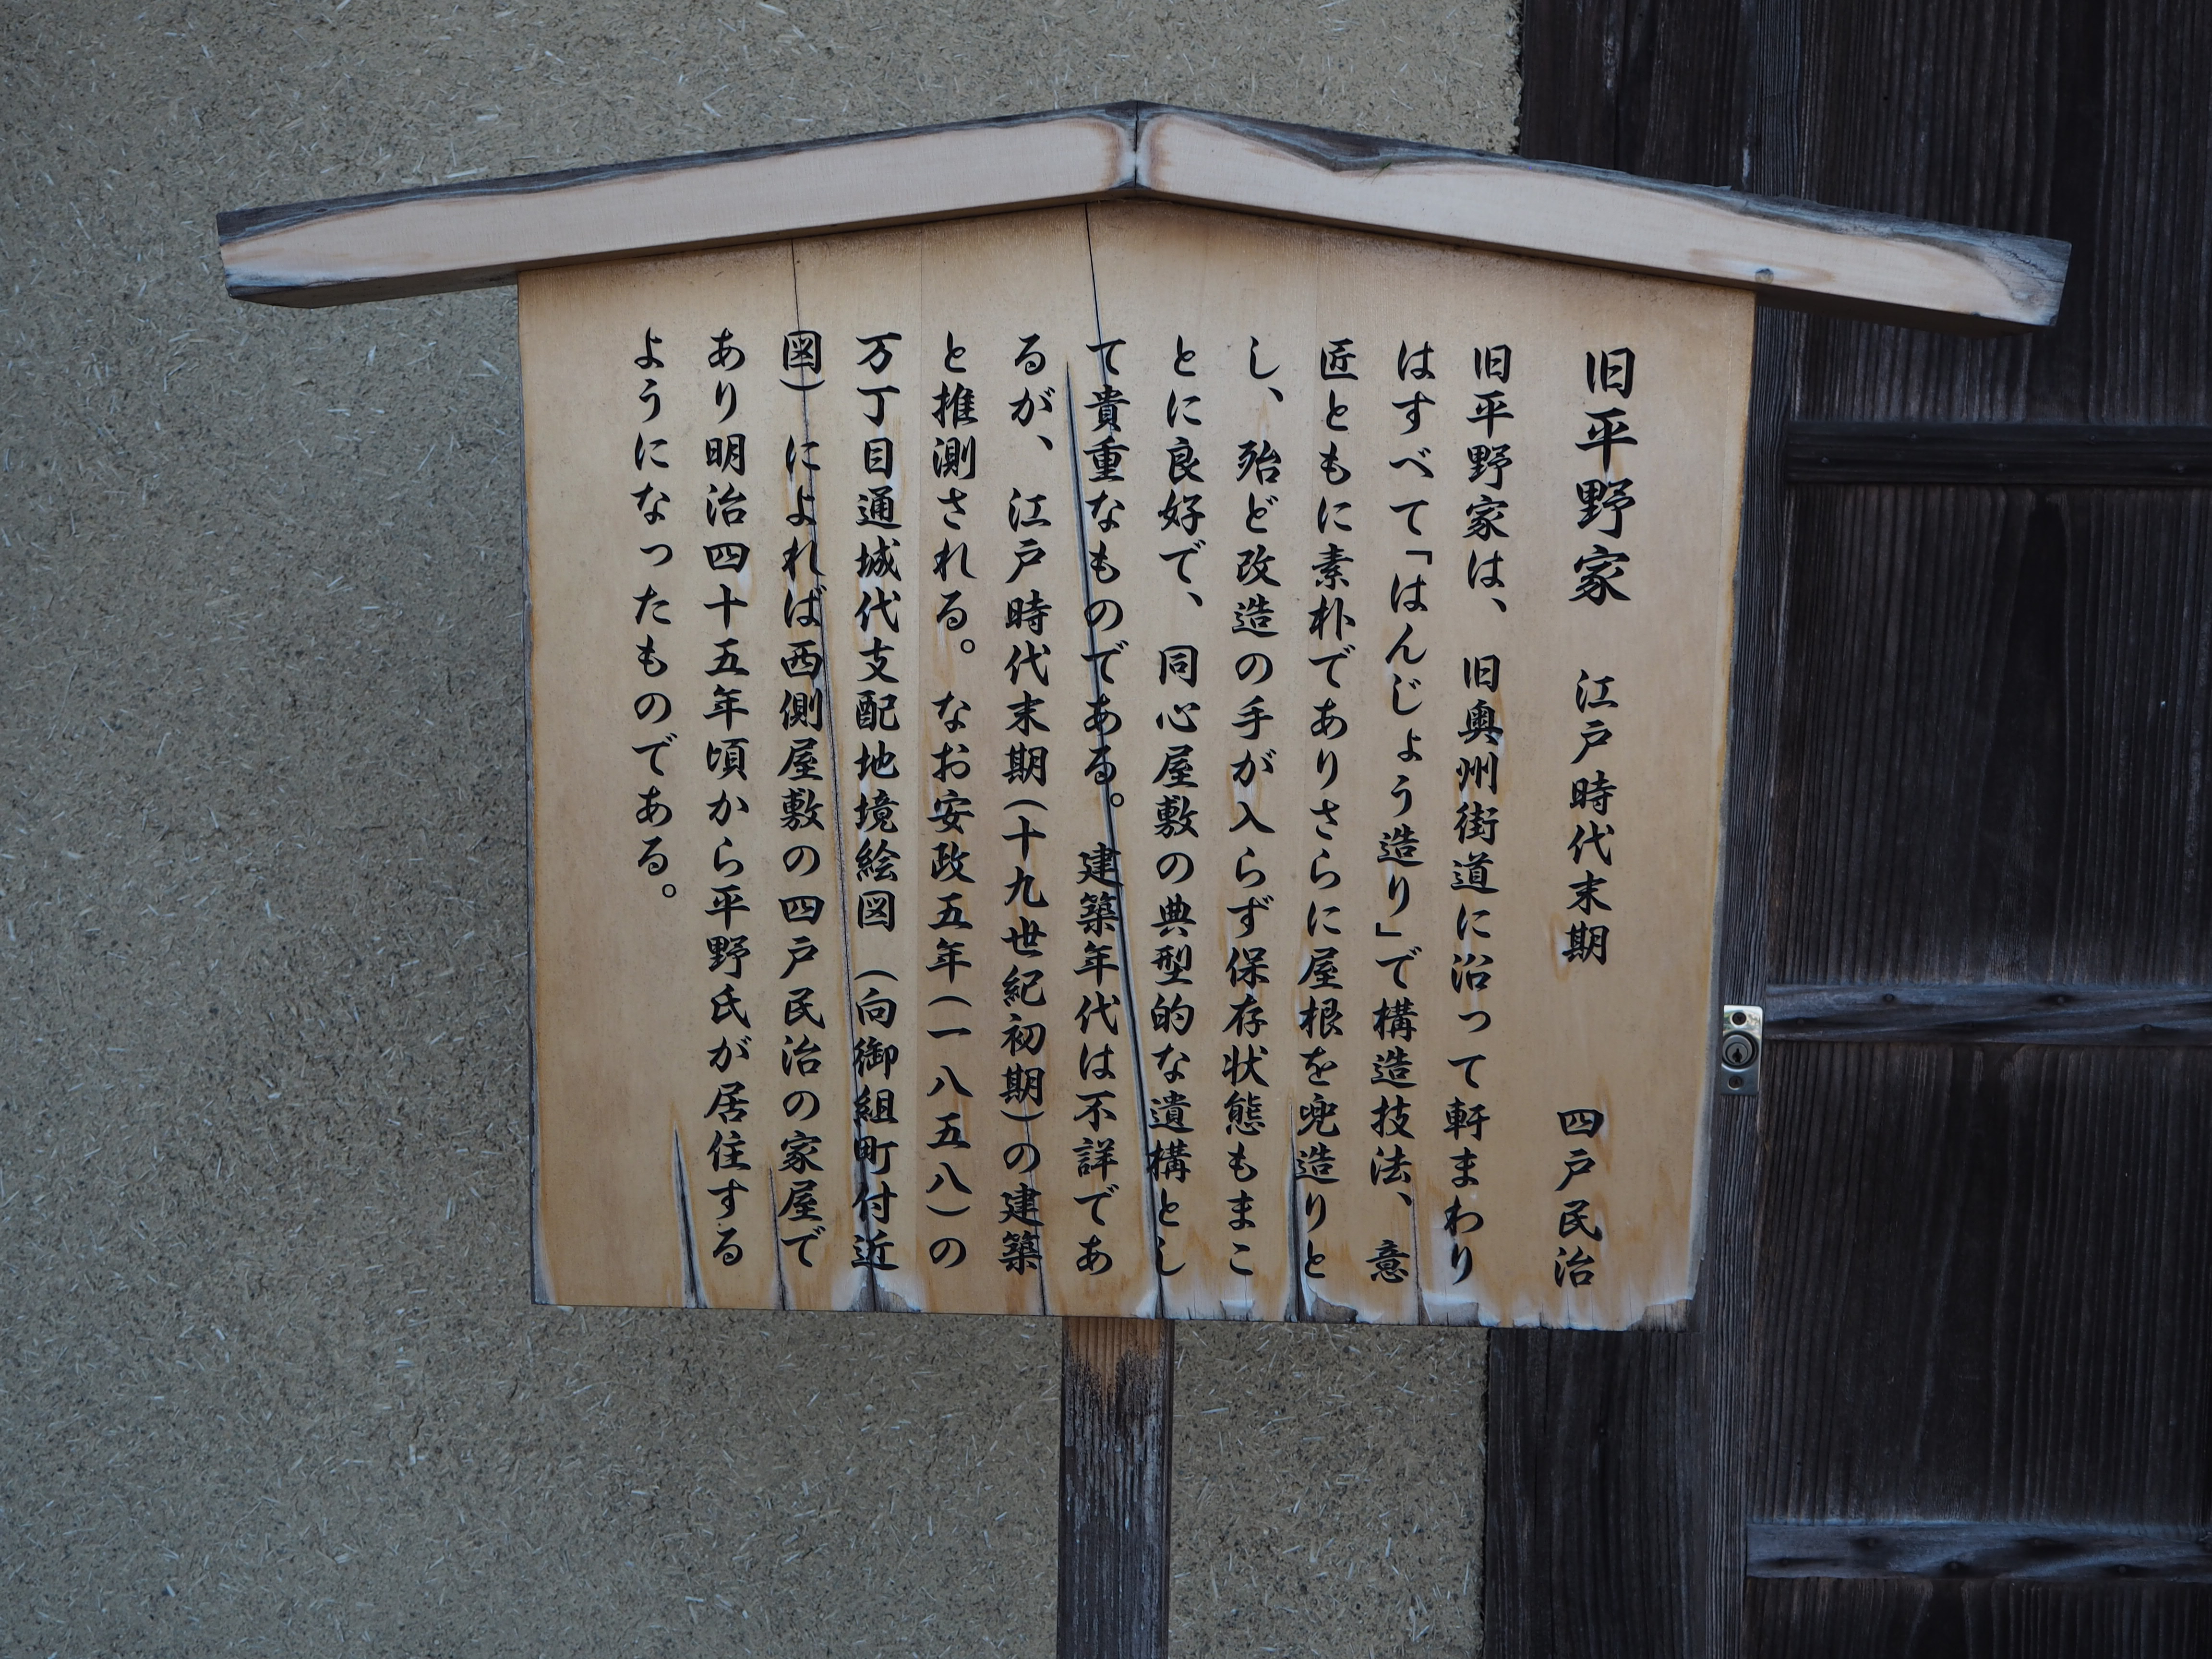 旧平野家　江戸時代末期　　四戸民治
旧平野家は、旧奥州街道に沿って軒まわり
はすべて「はんじょう造り」で構造技法、意
匠ともに素朴でありさらに屋根を兜造りと
し、殆ど改造の手が入らず保存状態もまこ
とに良好で、同心屋敷の典型的な遺構とし
て貴重なものである。建築年代は不詳であ
るが、江戸時代末期(十九世紀初期)の建築
と推測される。なお安政五年(一八五八)の
万丁目通城代支配地境絵図(向御組町付近
図)によれば西側屋敷の四戸民治の家屋で
あり明治四十五年頃から平野氏が居住する
ようになったものである。